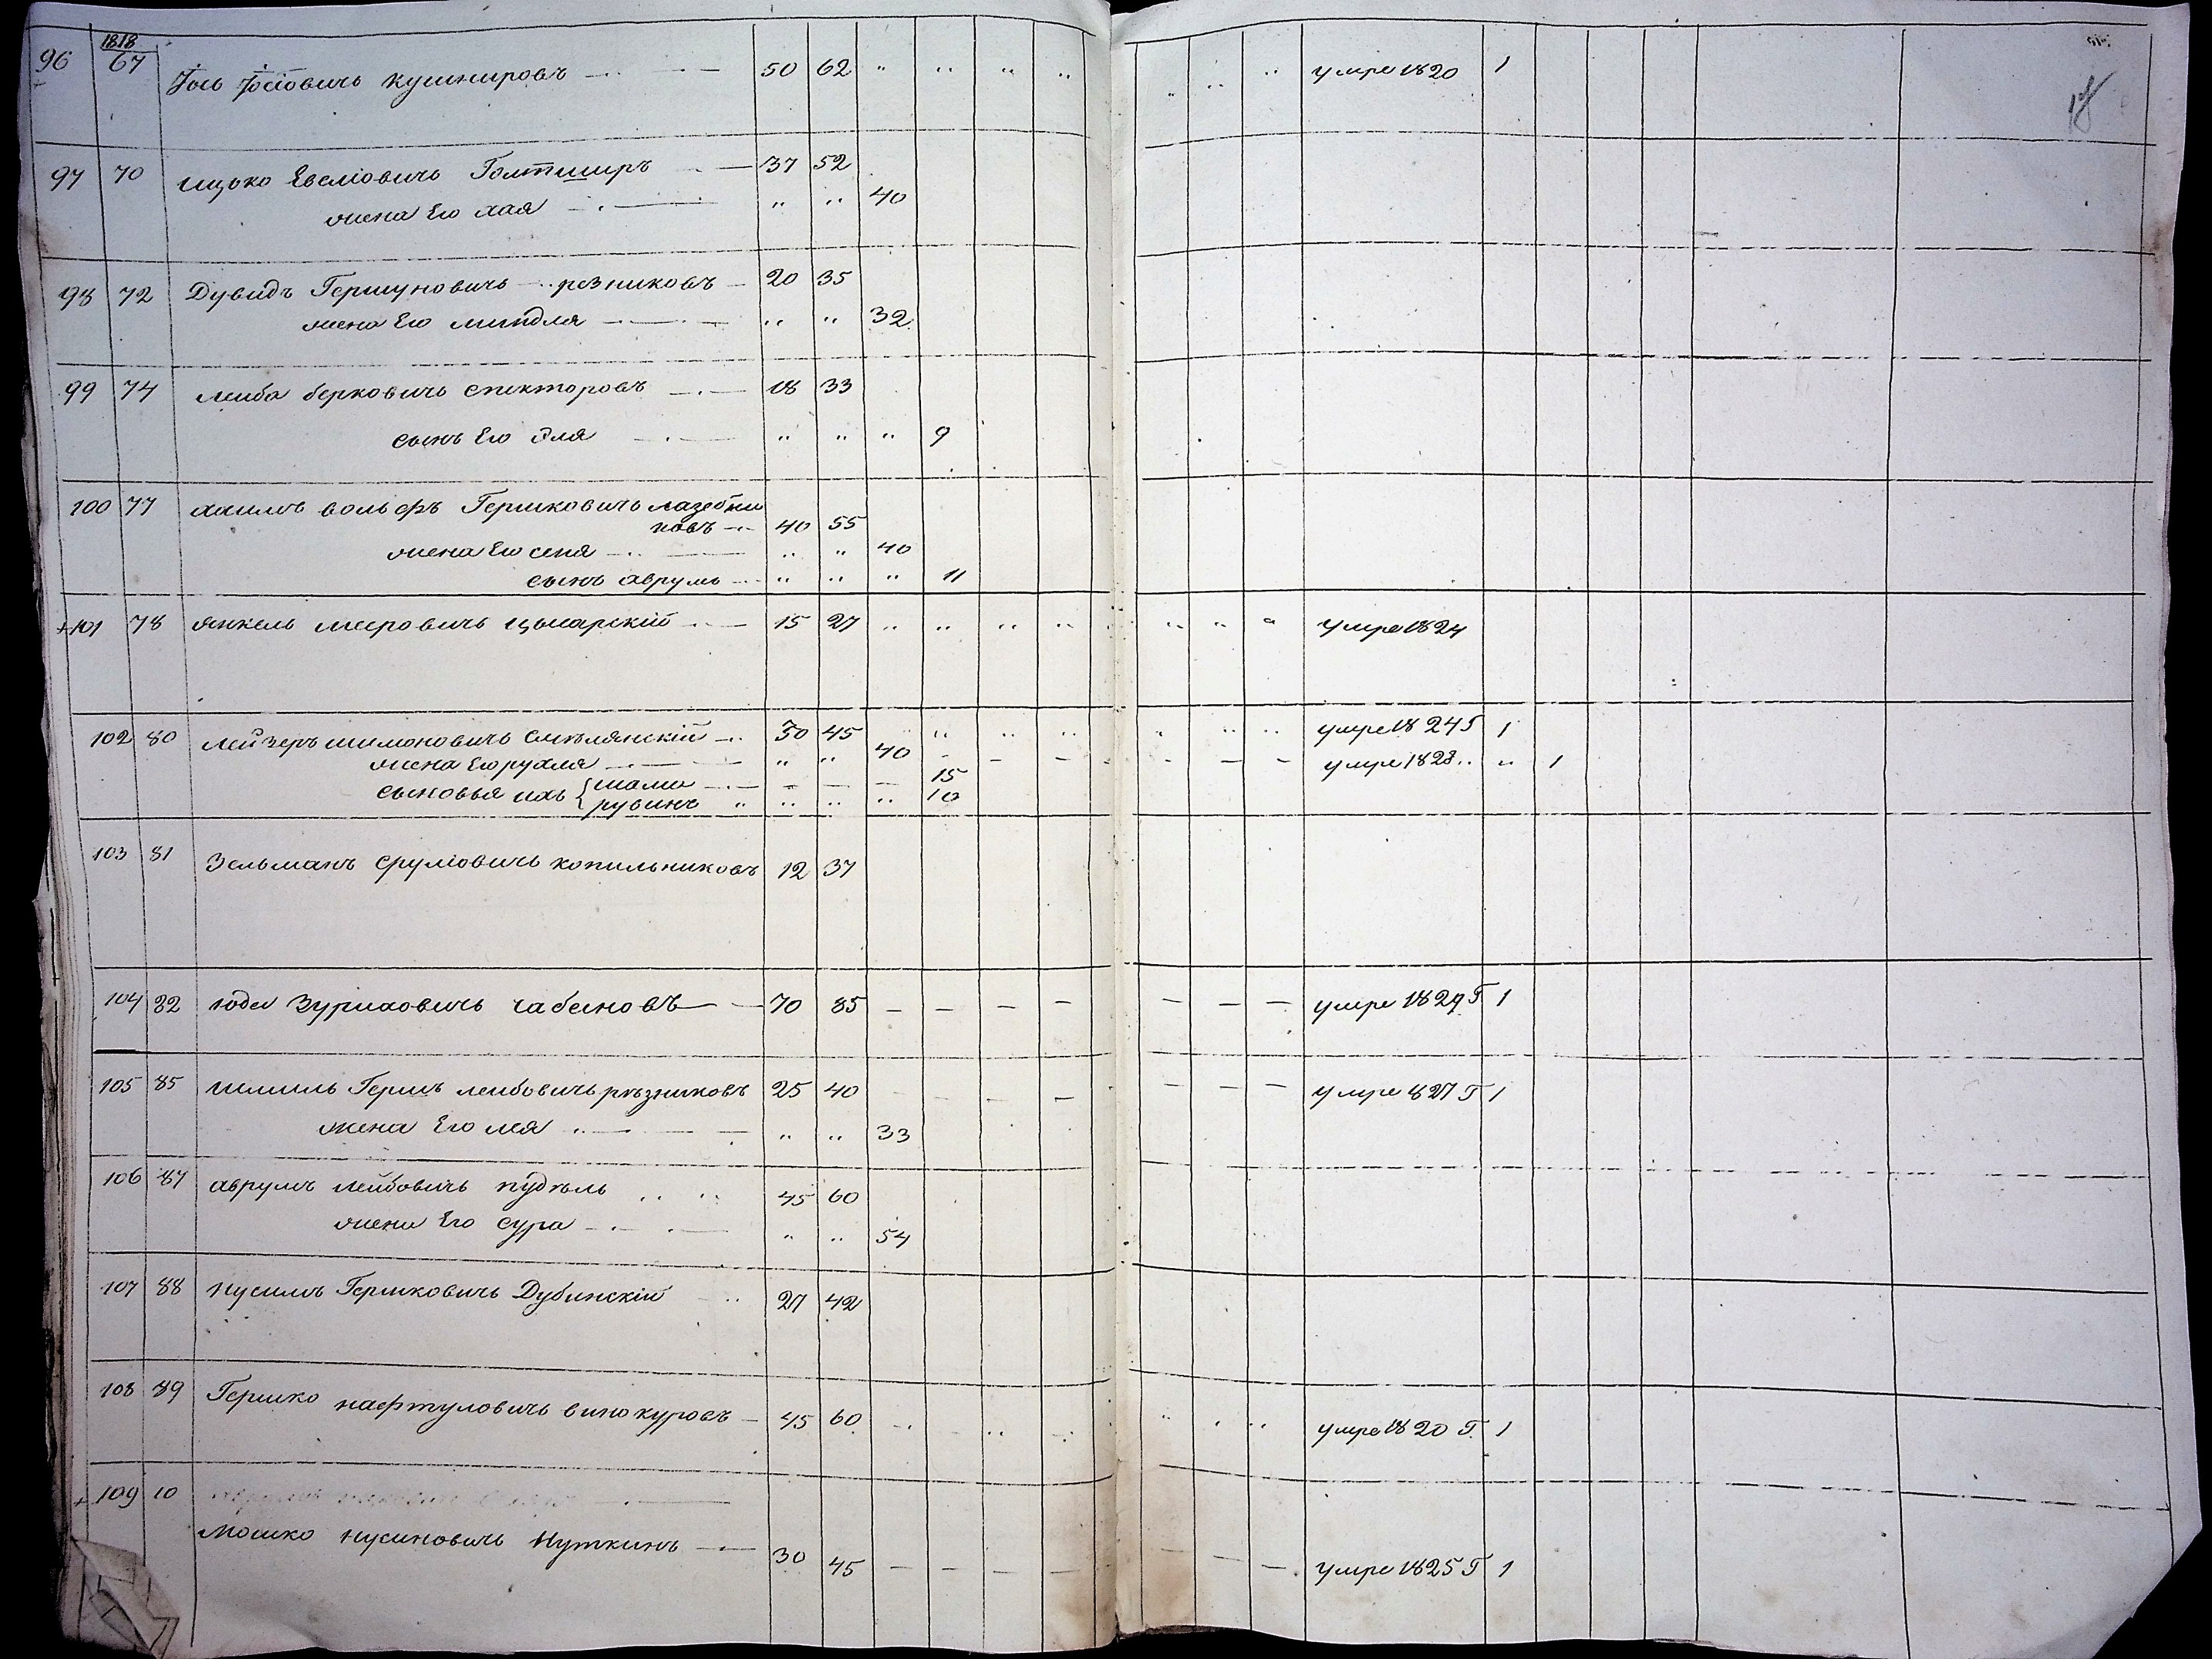 1818
96 67 Іось Іосіовичь Кушнировъ 50 62 " " " " " " " умре 1820 1
97 70 Ицько Евсліовичь Голтширъ 37 52
жена Его хая " " 40
98 72 Дувидъ Гершуновичь резниковъ 20 35
жена Его миндля " " 32
99 74 Леиба берковичь спекторовъ 18 33
сынъ Его Эля " " " 9
100 77 хаимъ вольфъ Гершковичь лазебни
ковъ 40 55
жена Его сеня " " 40
сынъ аврумъ " " " 11
+101 78 Янкель мееровичь 15 27 " " " " " " " умре 1824
102 80 Лейзеръ шимоновичь смълянскій 30 45 " " " " " " умре 18245 1
жена Его рухля " " 40 - - - - - - умре 1823 " 1
сыновья ихъ { шами - - - 15
рувинъ " " " " 10
103 81 Зельманъ сруліовичь копильниковъ 12 37
104 82 юдел Зуриховичь чабеновъ 70 85 - - - - - - - умре 1829 Г 1
105 85 шмиль Гершъ леибовичь ръзниковъ 25 40 - - - - - - - умре 827 Г 1
жена Его лея " " 33
106 87 аврумъ лейбовичь пудъль 45 60
жена Его сура " " 54
107 88 нусимъ Гершковичь Дубинскій 27 42
108 89 Гершко нафтуловичь винокуровъ 45 60 " " " " " " умре 1820 Г. 1
+109 10
Мошко нусиновичь Нуткинъ 30 45 - - - - - - - умре 1825 Г 1